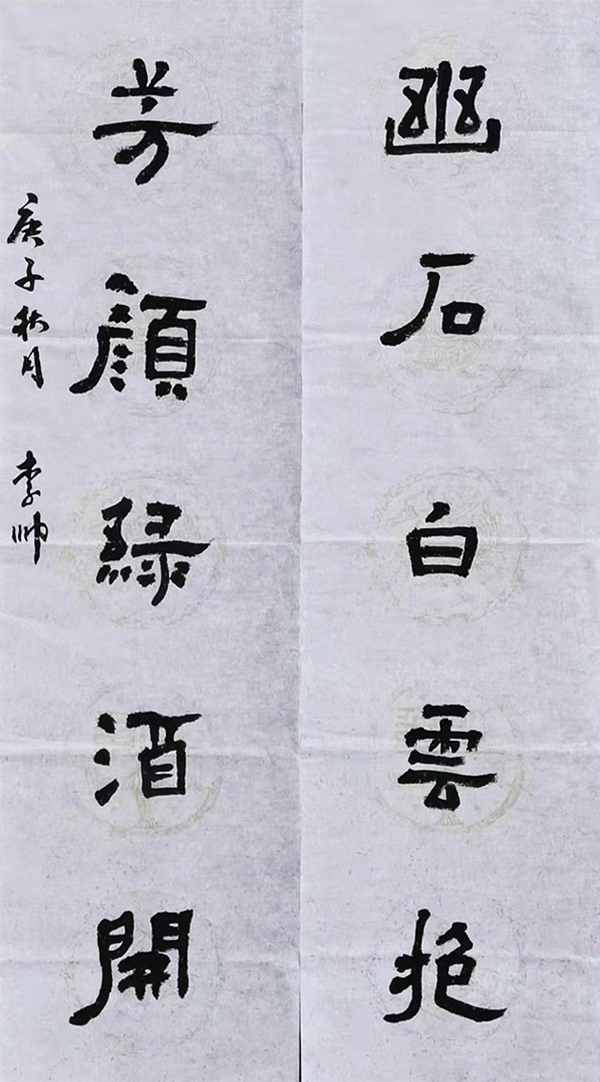 幽石白雲抱
芳顔緑酒開
庚子秋月 李帅